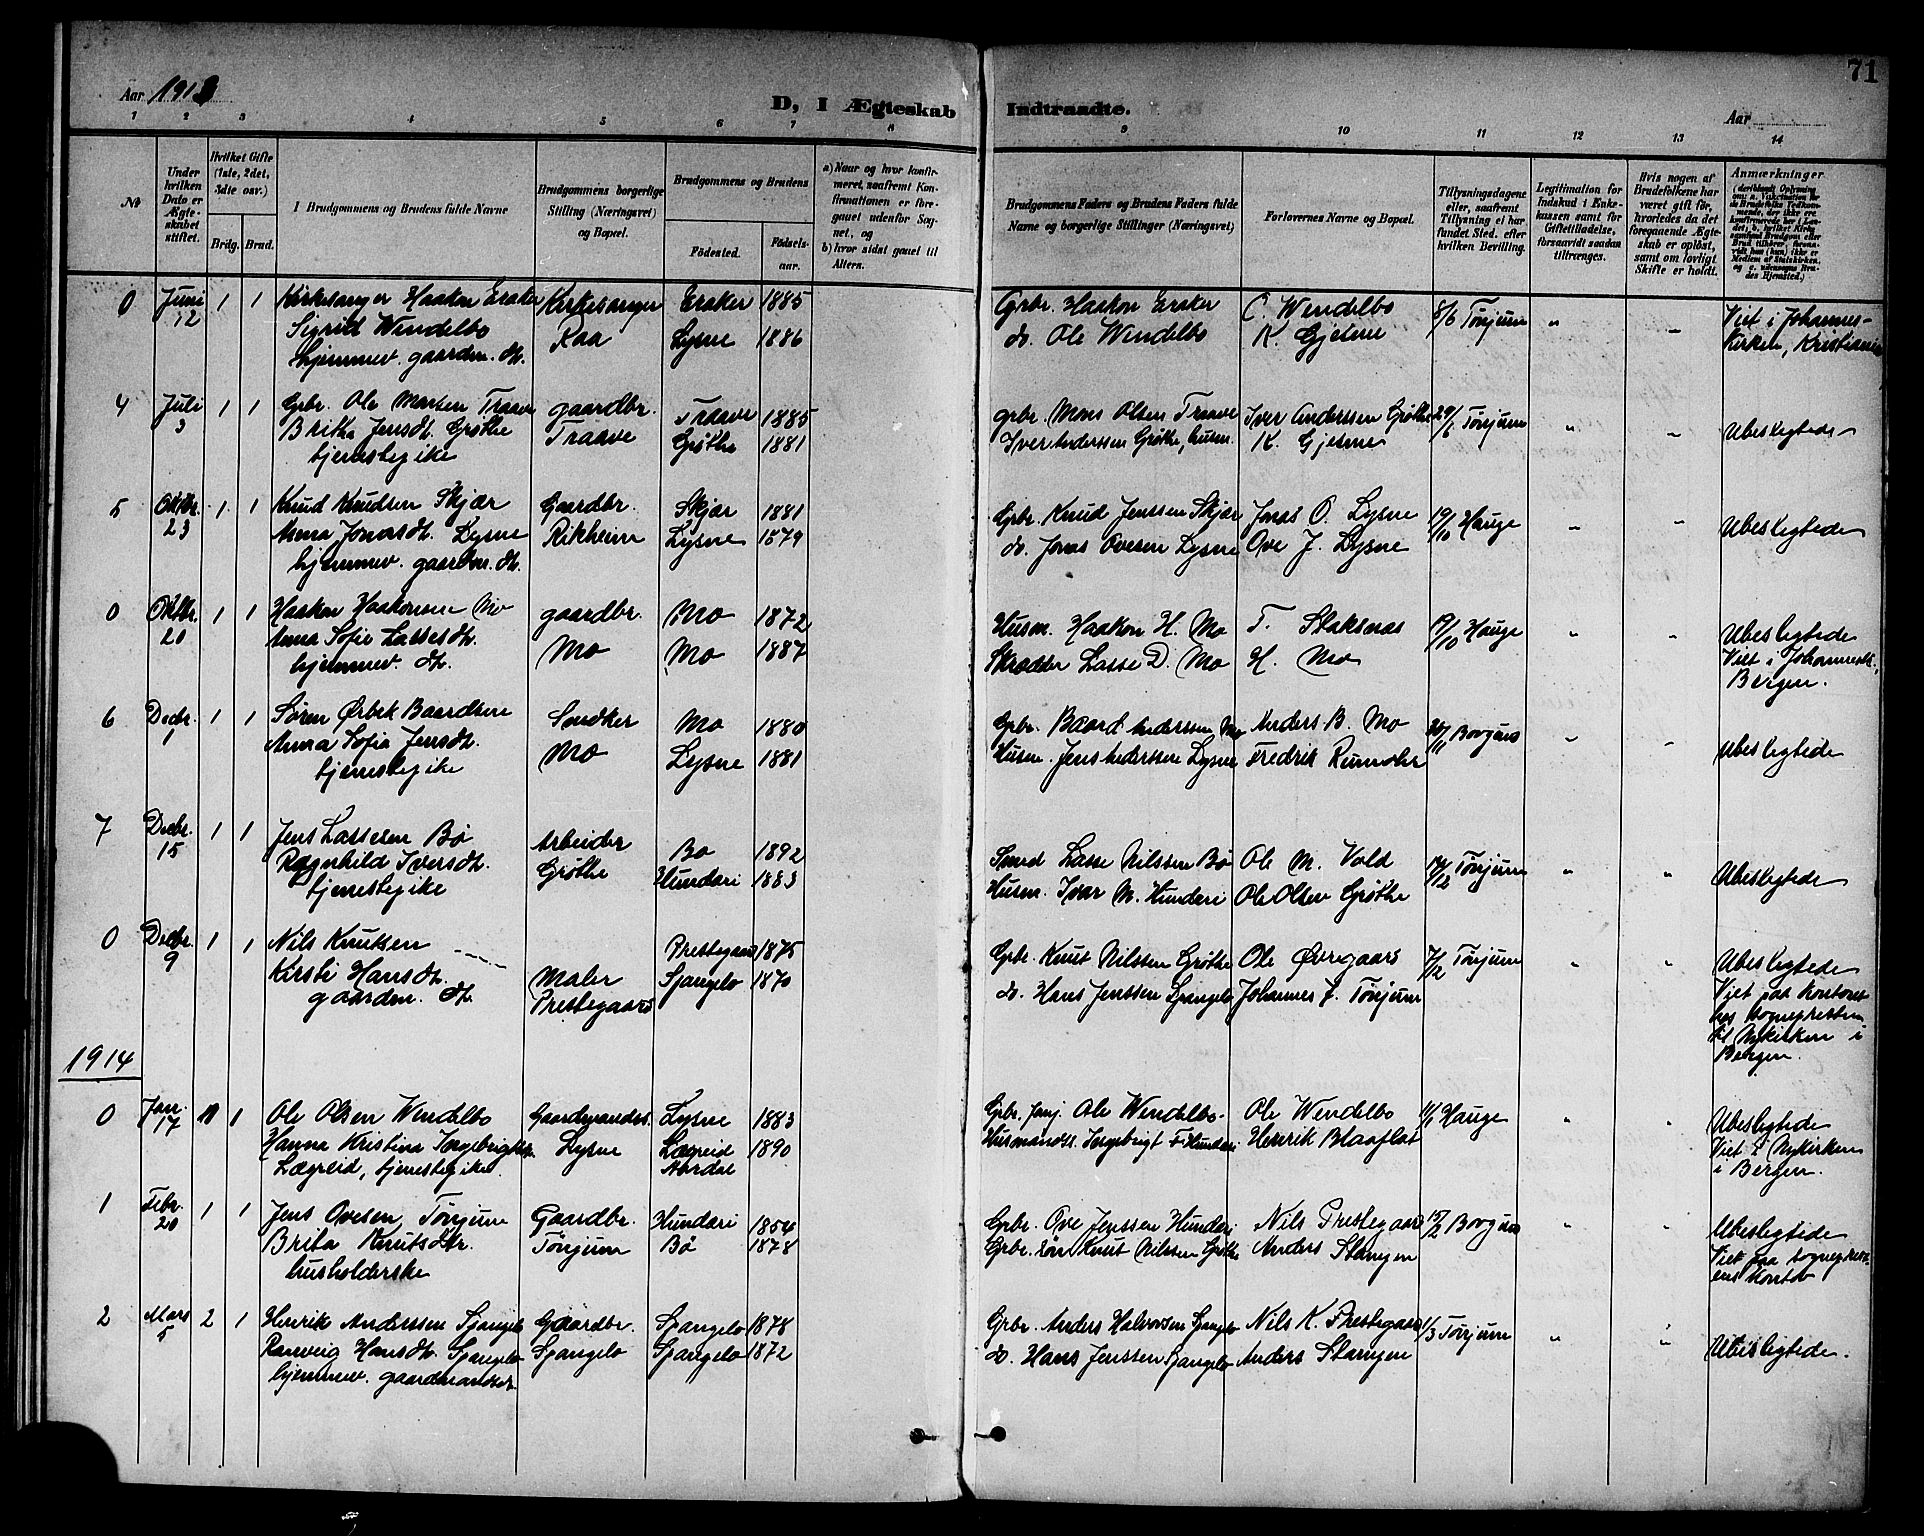 71
Aar 1913
D, I Ægteskab Indtraadte.
Aar
1 2 3 4 5 6 7 8 9 10 11 12 13 14
№
Under hvilken Dato er Ægteskabet stiftet.
Hvilket Gifte (1ste, 2det, 3die osv.)
Brdg. Brud.
I Brudgommens og Brudens fulde Navne
Brudgommens borgerlige Stilling (Næringsvei) og Bopæl.
Brudgommens og Brudens
Fødested.
Fødsels-aar.
a) Naar og hvor konfirmeret, saafremt Konfirmationen er foregaaet udenfor Sognet, og
b) hvor sidst gaaet til Alters.
Brudgommens Faders og Brudens Faders fulde Navne og borgerlige Stillinger (Næringsvei)
Forlovernes Navne og Bopæl.
Tillysningsdagene eller, saafremt Tillysning ei har fundet Sted, efter hvilken Bevilling.
Legitimation for Indskud i Enkekassen samt for Giftetilladelse, forsaavidt saadan tiltrænges.
Hvis nogen af Brudefolkene har været gift før, hvorledes da det foregaaende Ægteskab er opløst, samt om lovligt Skifte er holdt.
Anmærkninger
0 Juni 1 1 Kirkesanger Haakon Eraker Kirkesanger Eraker 1885 Grbr. Haakon Eraker C. Wendelbo 8/6 Tønjum " " Viet i Johannes-
12 Sigrid Wendelbo Raa Lysne 1886 do. Ole Wendelbo K. Gjesme Kirken, Kristiania
hjemmev. gaardm. dt.
4 Juli 1 1 Gbr. Ole Monsen Traave gaardbr. Traave 1885 grbr. Mons Olsen Traave Iver Anderssen Grøthe 29/6 Tønjum " " Ubeslegtede
3 Britha Jensdt. Grøthe Traave Grøthe 1881 Iver Anderssen Grøthe, husm. K. Gjesme
tjenestepike
5 Oktbr. 1 1 Knud Knudsen Skjær Gaardbr. Skjær 1881 Grbr. Knud Jenssen Skjær Jonas O. Lysne 19/10 Hauge " " Ubeslegtede
23 Anna Jonasdt. Lysne Rikheim Lysne 1879 do. Jonas Ovesen Lysne Ove J. Lysne
hjemmev. gaardm. dt.
0 Oktbr. 1 1 Haakon Haakonsen Mo gaardbr. Mo 1872 Husm. Haakon H. Mo T. Staksnas 19/10 Hauge " " Ubeslegtede
20 Anna Sofie Lassesdt. Mo Mo 1887 Skrædder Lasse D. Mo H. Mo Viet i Johannesk.,
hjemmev. dt. Bergen.
6 Decbr. 1 1 Søren Ørbek Baardsen Snedker Mo 1880 Grbr. Baard Anderssen Mo Anders B. Mo 30/11 Borgund " " Ubeslegtede
1 Anna Sofie Jensdt. Mo Lysne 1881 Husm. Jens Anderssen Lysne Fredrik Rumohr
tjenestepike
7 Decbr. 1 1 Jens Lassesen Bø Arbeider Bø 1892 Smed Lasse Nilssen Bø Ole M. Vold 14/12 Tønjum " " Ubeslegtede
15 Ragnhild Iversdt. Grøthe Hunderi 1883 Husm. Ivar M. Hunderi Ole Olsen Grøthe
tjenestepike
0 Decbr. 1 1 Nils Knutsen Prestegaard 1875 Grbr. Knut Nilssen Grøthe Ole Øvregaard 7/12 Tønjum " " Ubeslegtede
9 Kirsti Hansdt. Maler Spangelo 1870 do. Hans Jenssen Spangelo Johannes J. Tønjum Viet paa Kontoret
gaardm. dt. Prestegaard hos sognepresten
til Nykirken i
Bergen.
1914
0 Jan. 1 1 Ole Olsen Wendelbo Gaardmandss. Lysne 1883 Grbr. Ole Wendelbo Ole Wendelbo 11/1 Hauge " " Ubeslegtede
17 Hanna Kristina Ingebrigtsdt. Lysne Lægreid 1890 Husmandss. Ingebrigt F. Hunderi Henrik Blaaflat Viet i Nykirken
Lægreid, tjenestepike Aardal i Bergen.
1 Febr. 1 1 Jens Ovesen Tønjum Gaardbr. Hunderi 1854 Grbr. Ove Jenssen Hunderi Nils Prestegaard 15/2 Borgund " " Ubeslegtede
20 Brita Knutsdtr. Tønjum Bø 1878 Grbr. søn Knut Nilssen Grøthe Anders Stangen Viet paa sogneprest-
husholderske ens kontor
2 Mars 2 1 Henrik Anderssen Spangelo Gaardbr. Spangelo 1878 Grbr. Anders Halvorsen Spangelo Nils K. Prestegaard 1/3 Tønjum " " Ubeslegtede.
5 Ranveig Hansdt. Spangelo Spangelo Spangelo 1872 do. Hans Jenssen Spangelo Anders Stangen
hjemmev. gaardmandsdt.